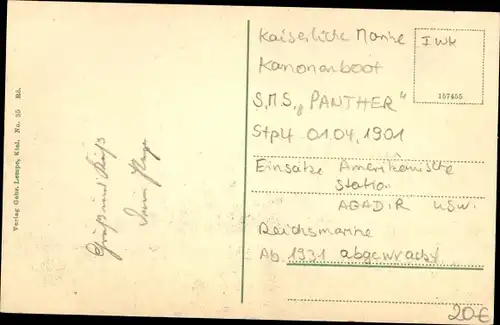 Verlag Gebr. Lempe, Kiel. No. 35 Rö.
Gruß und Kuß
Dein
Kaiserliche Marine
Kanonenboot
S.M.S. „PANTHER"
Stpll 01.04.1901
Einsätze Amerikanische
Station
AGADIR usw.
Reichsmarine
Ab 1931 abgewrackt
IWK
157455
20€